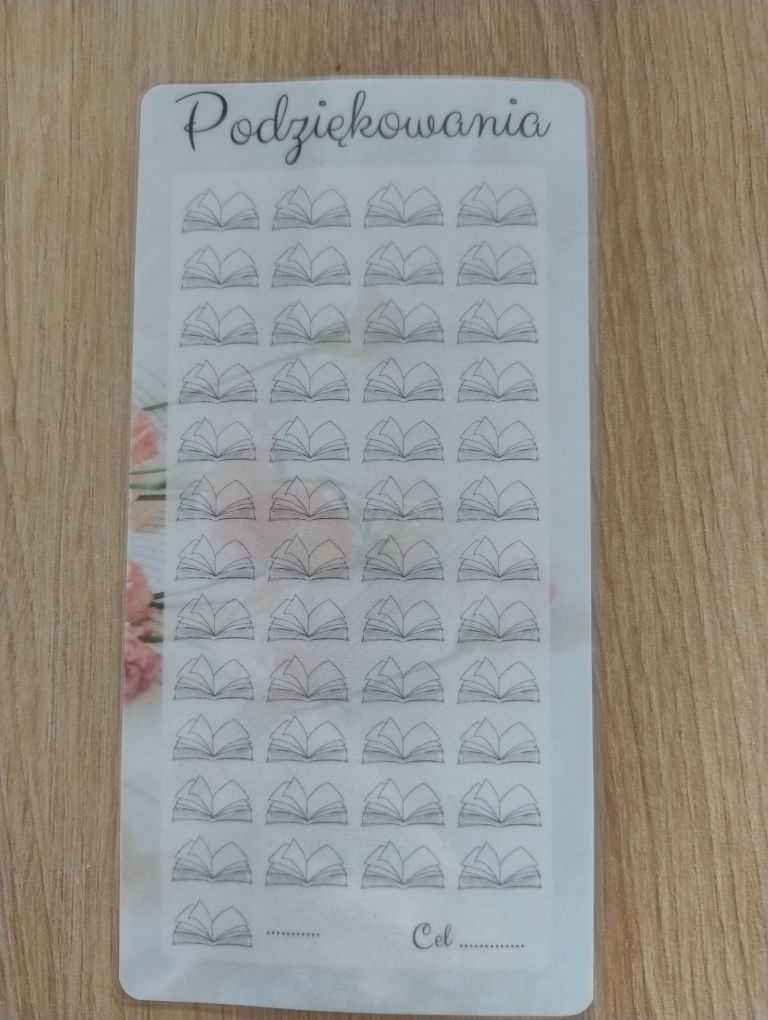 Podziękowania
........... Cel .............